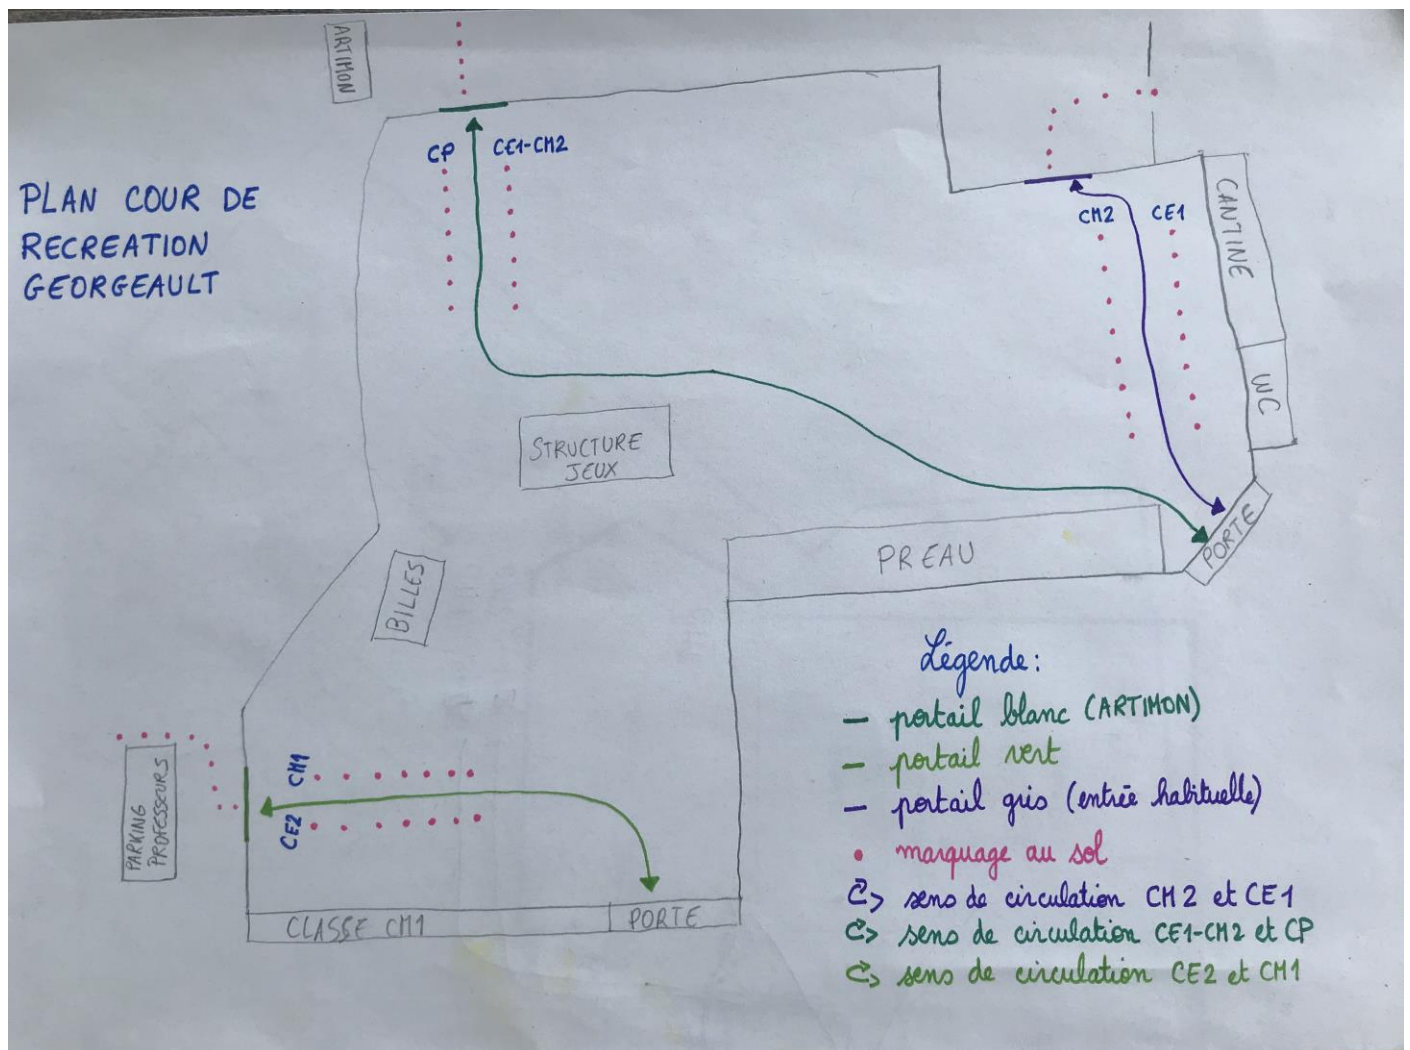 ARTIMON
PLAN COUR DE
RECREATION
GEORGEAULT
CP
CE1-CM2
CM2
CE1
CANTINE
WC
STRUCTURE
JEUX
PREAU
PORTE
BILLES
PARKING
PROFESSEURS
CM1
CE2
CLASSE CM1
PORTE
Légende:
portail blanc (ARTIMON)
portail vert
portail gris (entrée habituelle)
marquage au sol
sens de circulation CM2 et CE1
sens de circulation CE1-CM2 et CP
sens de circulation CE2 et CM1